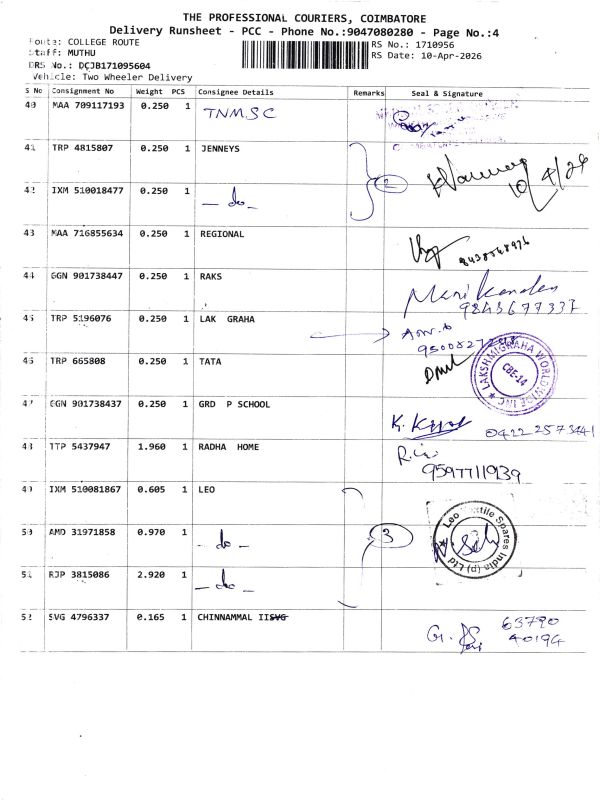 THE PROFESSIONAL COURIERS, COIMBATORE
Delivery Runsheet - PCC - Phone No.:9047080280 - Page No.:4
Route: COLLEGE ROUTE
RS No.: 1710956
Staff: MUTHU
RS Date: 10-Apr-2026
DRS No.: DCJB171095604
Vehicle: Two Wheeler Delivery
S No Consignment No Weight PCS Consignee Details Remarks Seal & Signature
40 MAA 709117193 0.250 1 TNMSC
41 TRP 4815807 0.250 1 JENNEYS
42 IXM 510018477 0.250 1 - do - 2 10/4/26
43 MAA 716855634 0.250 1 REGIONAL
44 GGN 901738447 0.250 1 RAKS Manikandan
9843677337
45 TRP 5196076 0.250 1 LAK GRAHA
LAKSHMIGRAHA WORLDWIDE INC CBE-14
46 TRP 665808 0.250 1 TATA
47 GGN 901738437 0.250 1 GRD P SCHOOL 0422 2573441
48 TTP 5437947 1.960 1 RADHA HOME
9597711939
49 IXM 510081867 0.605 1 LEO
50 AMD 31971858 0.970 1 - do - 3 Leo Textile Spares India (p) Ltd
51 RJP 3815086 2.920 1 - do -
52 SVG 4796337 0.165 1 CHINNAMMAL IISVG 63790
40194